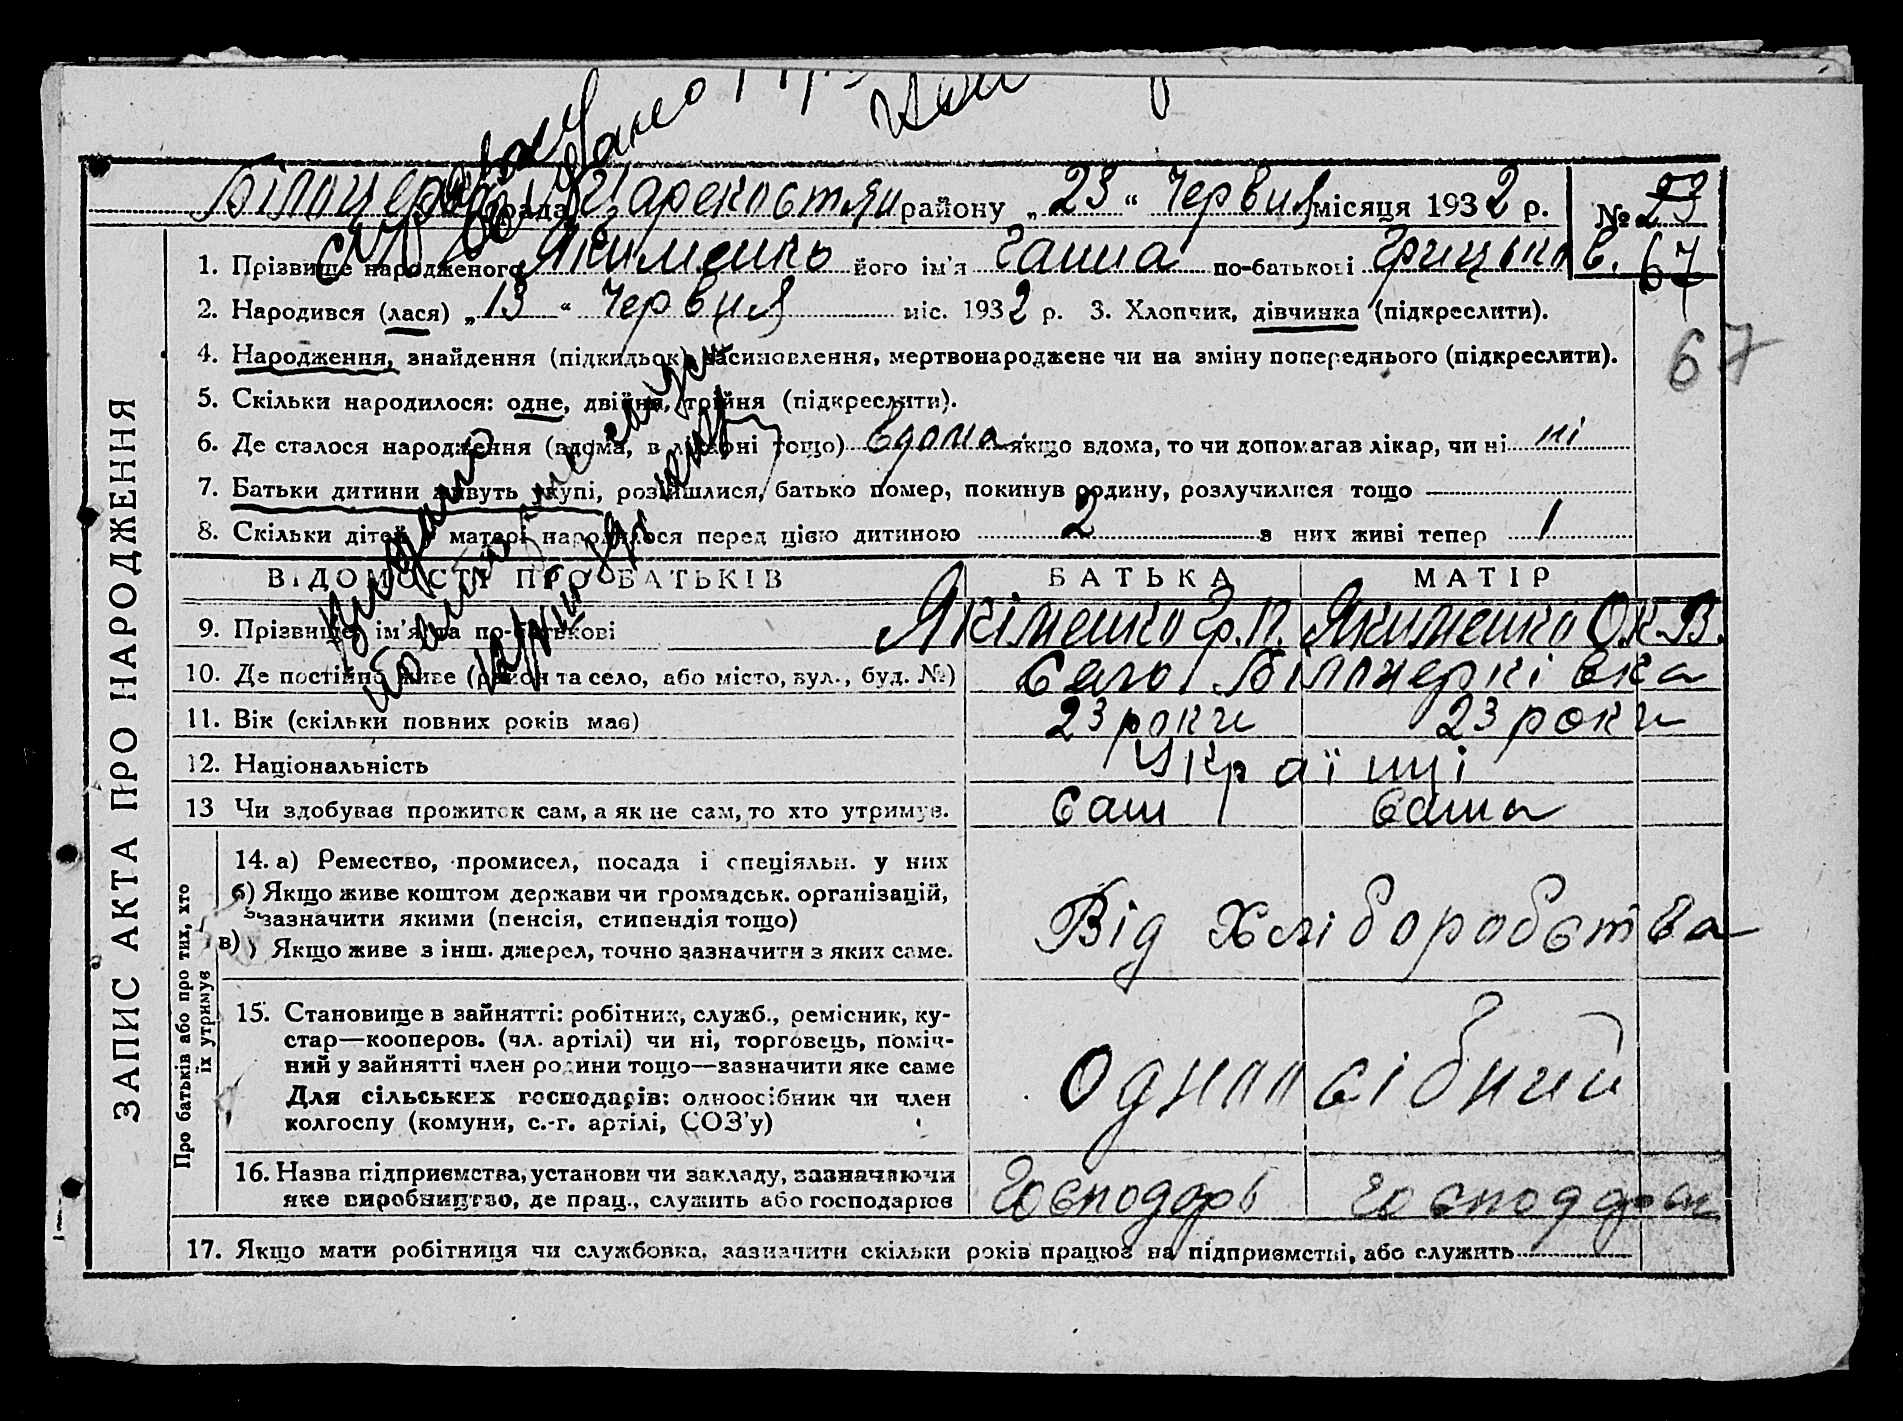 рада району „23“ Червня місяця 1932 р. № 23
1. Прізвище народженого Якименко його ім'я Ганна по-батькові Грицьков. 67
2. Народився (лася) „13“ Червня міс. 1932 р. 3. Хлопчик, дівчинка (підкреслити).
67
4. Народження, знайдення (підкидьок) засиновлення, мертвонароджене чи на зміну попереднього (підкреслити).
5. Скільки народилося: одне, двійня, трійня (підкреслити).
6. Де сталося народження (вдома, в лікарні тощо) вдома якщо вдома, то чи допомагав лікар, чи ні ні
7. Батьки дитини живуть укупі, розійшлися, батько помер, покинув родину, розлучилися тощо
8. Скільки дітей у матері народилося перед цією дитиною 2 з них живі тепер 1
ВІДОМОСТІ ПРО БАТЬКІВ БАТЬКА МАТІР
9. Прізвище, ім'я та по-батькові Якіменко Гр. П. Якименко Ок. В.
10. Де постійно живе (район та село, або місто, вул., буд. №) Село Білоцерківка
11. Вік (скільки повних років має) 23 роки 23 роки
12. Національність Українці
13 Чи здобував прожиток сам, а як не сам, то хто утримує. Сам Сама
ЗАПИС АКТА ПРО НАРОДЖЕННЯ
Про батьків або про тих, хто їх утримує
14. а) Ремество, промисел, посада і спеціяльн. у них
б) Якщо живе коштом держави чи громадськ. організацій,
зазначити якими (пенсія, стипендія тощо)
в) Якщо живе з інш. джерел, точно зазначити з яких саме.
Від Хліборобства
15. Становище в зайнятті: робітник, служб., ремісник, ку-
стар—кооперов. (чл. артілі) чи ні, торговець, поміч-
ний у зайнятті член родини тощо—зазначити яке саме
Для сільських господарів: одноосібник чи член
колгоспу (комуни, с.-г. артілі, СОЗ'у)
Одноосібний
16. Назва підприємства, установи чи закладу, зазначаючи
яке виробництво, де прац., служить або господарює
Господарь господарка
17. Якщо мати робітниця чи службовка, зазначити скільки років працює на підприємстві, або служить